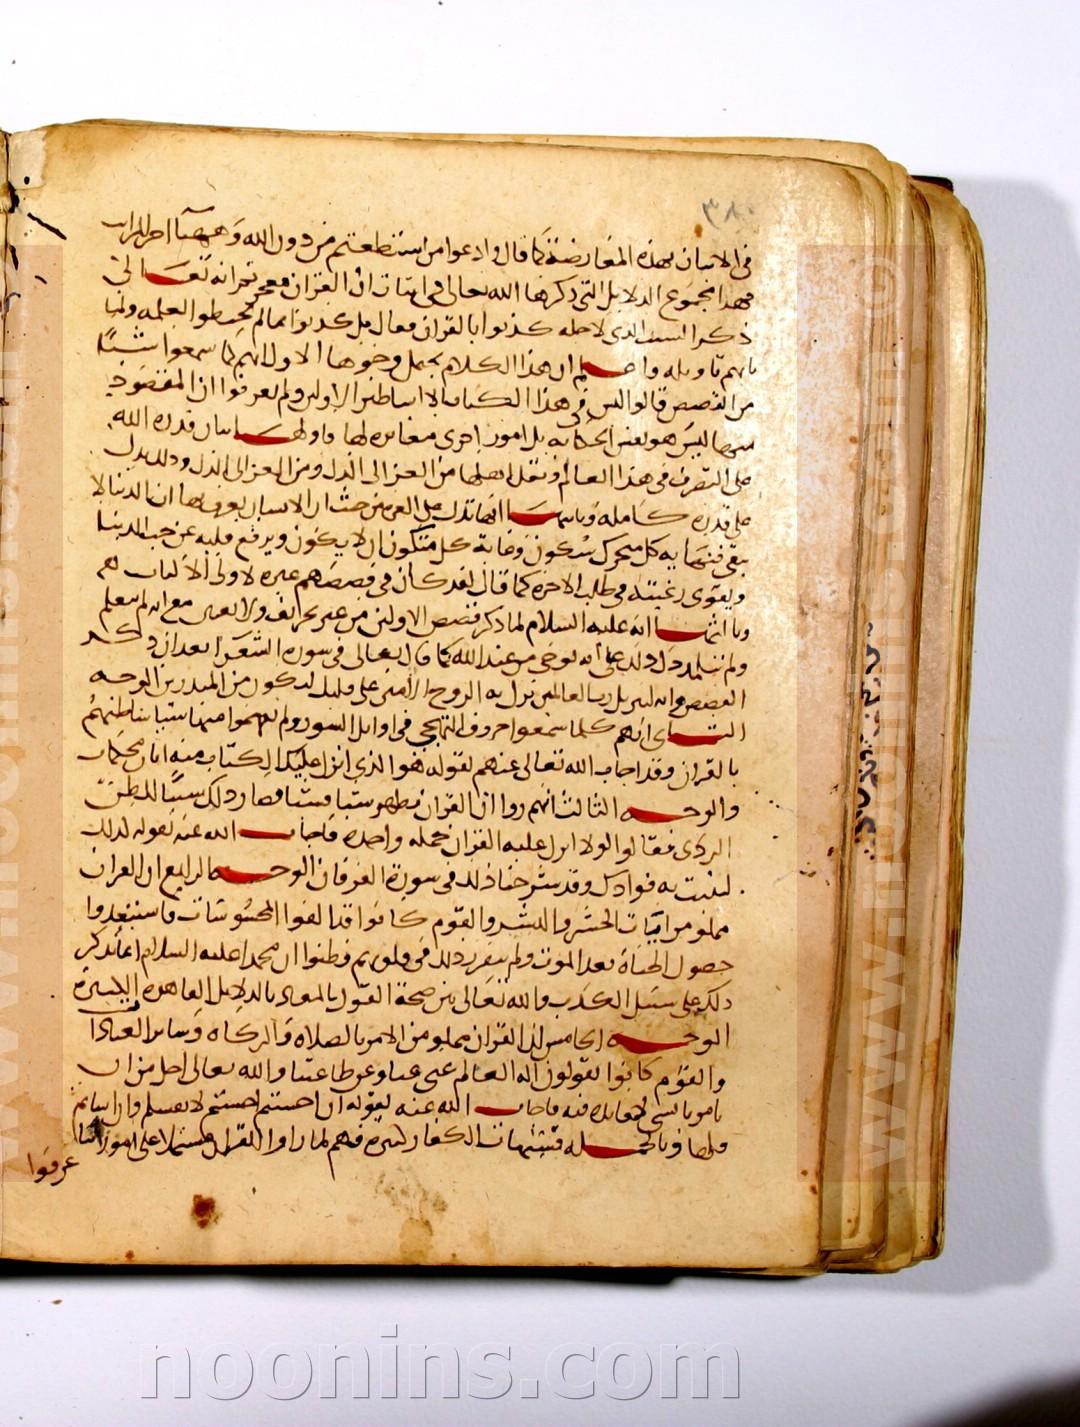 ٣٨
في الاتيان بهذه المعارضة كما قال وادعوا من استطعتم من دون الله وههنا اخر المراتب
فهذا مجموع الدلايل التي ذكرها الله تعالى في اثبات ان القران معجز ثم انه تعالى
ذكر السبب الذي لاجله كذبوا بالقران فقال بل كذبوا بما لم يحيطوا بعلمه ولما
ياتهم تاويله واعلم ان هذا الكلام يحتمل وجوها الاول انهم كلما سمعوا شيئا
من القصص قالوا ليس في هذا الكتاب الا اساطير الاولين ولم يعرفوا ان المقصود
منها ليس هو نفس الحكاية بل امور اخرى مغايرة لها فاولها بيان قدرة الله
على التصرف في هذا العالم ونقل اهله من العز الى الذل ومن الذل الى العز وذلك يدل
على قدرة كاملة وثانيها انها تدل على العبرة من حيث ان الانسان يعرف بها ان الدنيا لا
تبقى فنهاية كل متحرك سكون وغاية كل متكون ان لا يكون ويرفع قلبه عن حب الدنيا
ويقوى رغبته في طلب الاخرة كما قال لقد كان في قصصهم عبرة لاولي الالباب
وثالثها انه عليه السلام لما ذكر قصص الاولين من غير تحريف ولا تغيير مع انه لم يتعلم
ولم يتلمذ دل ذلك على انه بوحي من عند الله كما قال تعالى في سورة الشعرا بعد ان ذكر
القصص وانه لتنزيل رب العالمين نزل به الروح الامين على قلبك لتكون من المنذرين الوجه
الثاني انهم كلما سمعوا حروف التهجي في اوايل السور ولم يفهموا منها شيئا ساظنهم
بالقران وقد اجاب الله تعالى عنهم بقوله هو الذي انزل عليك الكتاب منه ايات محكمات
والوجه الثالث انهم راوا ان القران يظهر شيئا فشيئا فصار ذلك سببا للطعن
الردي فقالوا لولا انزل عليه القران جملة واحدة فاجاب الله عنه بقوله كذلك
لنثبت به فوادك وقد شرحنا ذلك في سورة الفرقان الوجه الرابع ان القران
مملو من اثبات الحشر والنشر والقوم كانوا قد الفوا المحسوسات فاستبعدوا
حصول الحياة بعد الموت ولم يتقرر ذلك في قلوبهم فظنوا ان محمدا عليه السلام انما يذكر
ذلك على سبيل الكذب والله تعالى بين صحة القول بالمعاد بالدلايل القاهرة الكثيرة
الوجه الخامس ان القران مملو من الامر بالصلاة والزكاة وساير العبادات
والقوم كانوا يقولون اله العالم غني عنا وعن طاعتنا والله تعالى اجل من ان
يامر بشي لا فايدة فيه فاجاب الله عنه بقوله ان احسنتم احسنتم لانفسكم وان اساتم
فلها وبالجملة فشبهات الكفار كثيرة فهم لما راوا القران مشتملا على امور ما
عرفوا
noonins.com